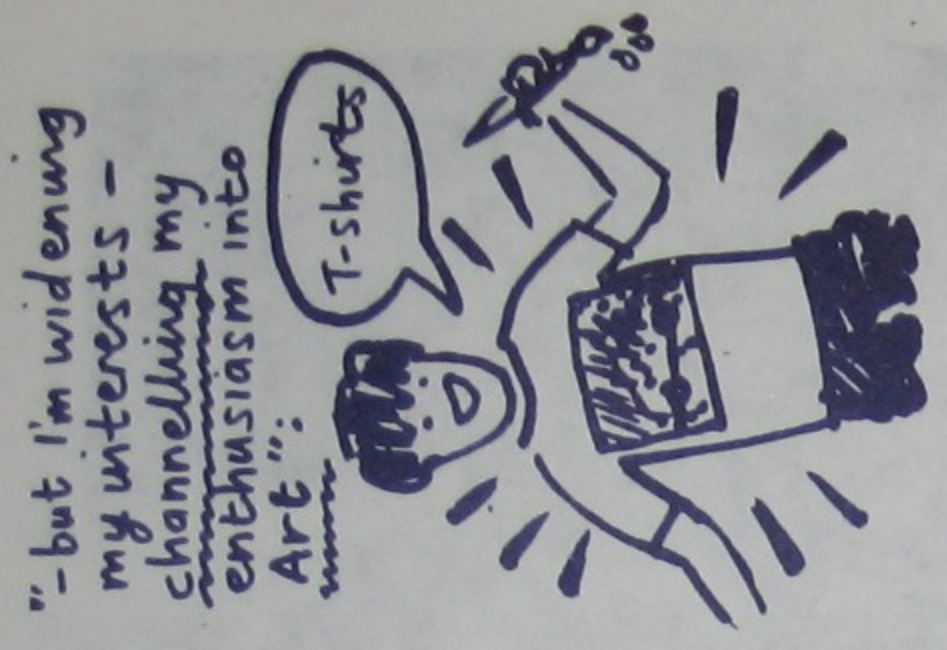 "-but I'm widening
my interests -
channelling my
enthusiasm into
Art":
T-shirts